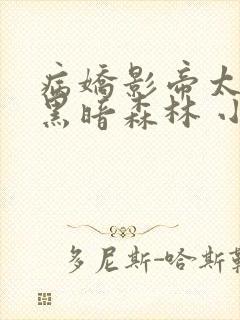 病嬌影帝太
黑暗森林 小
多尼斯-哈斯勒